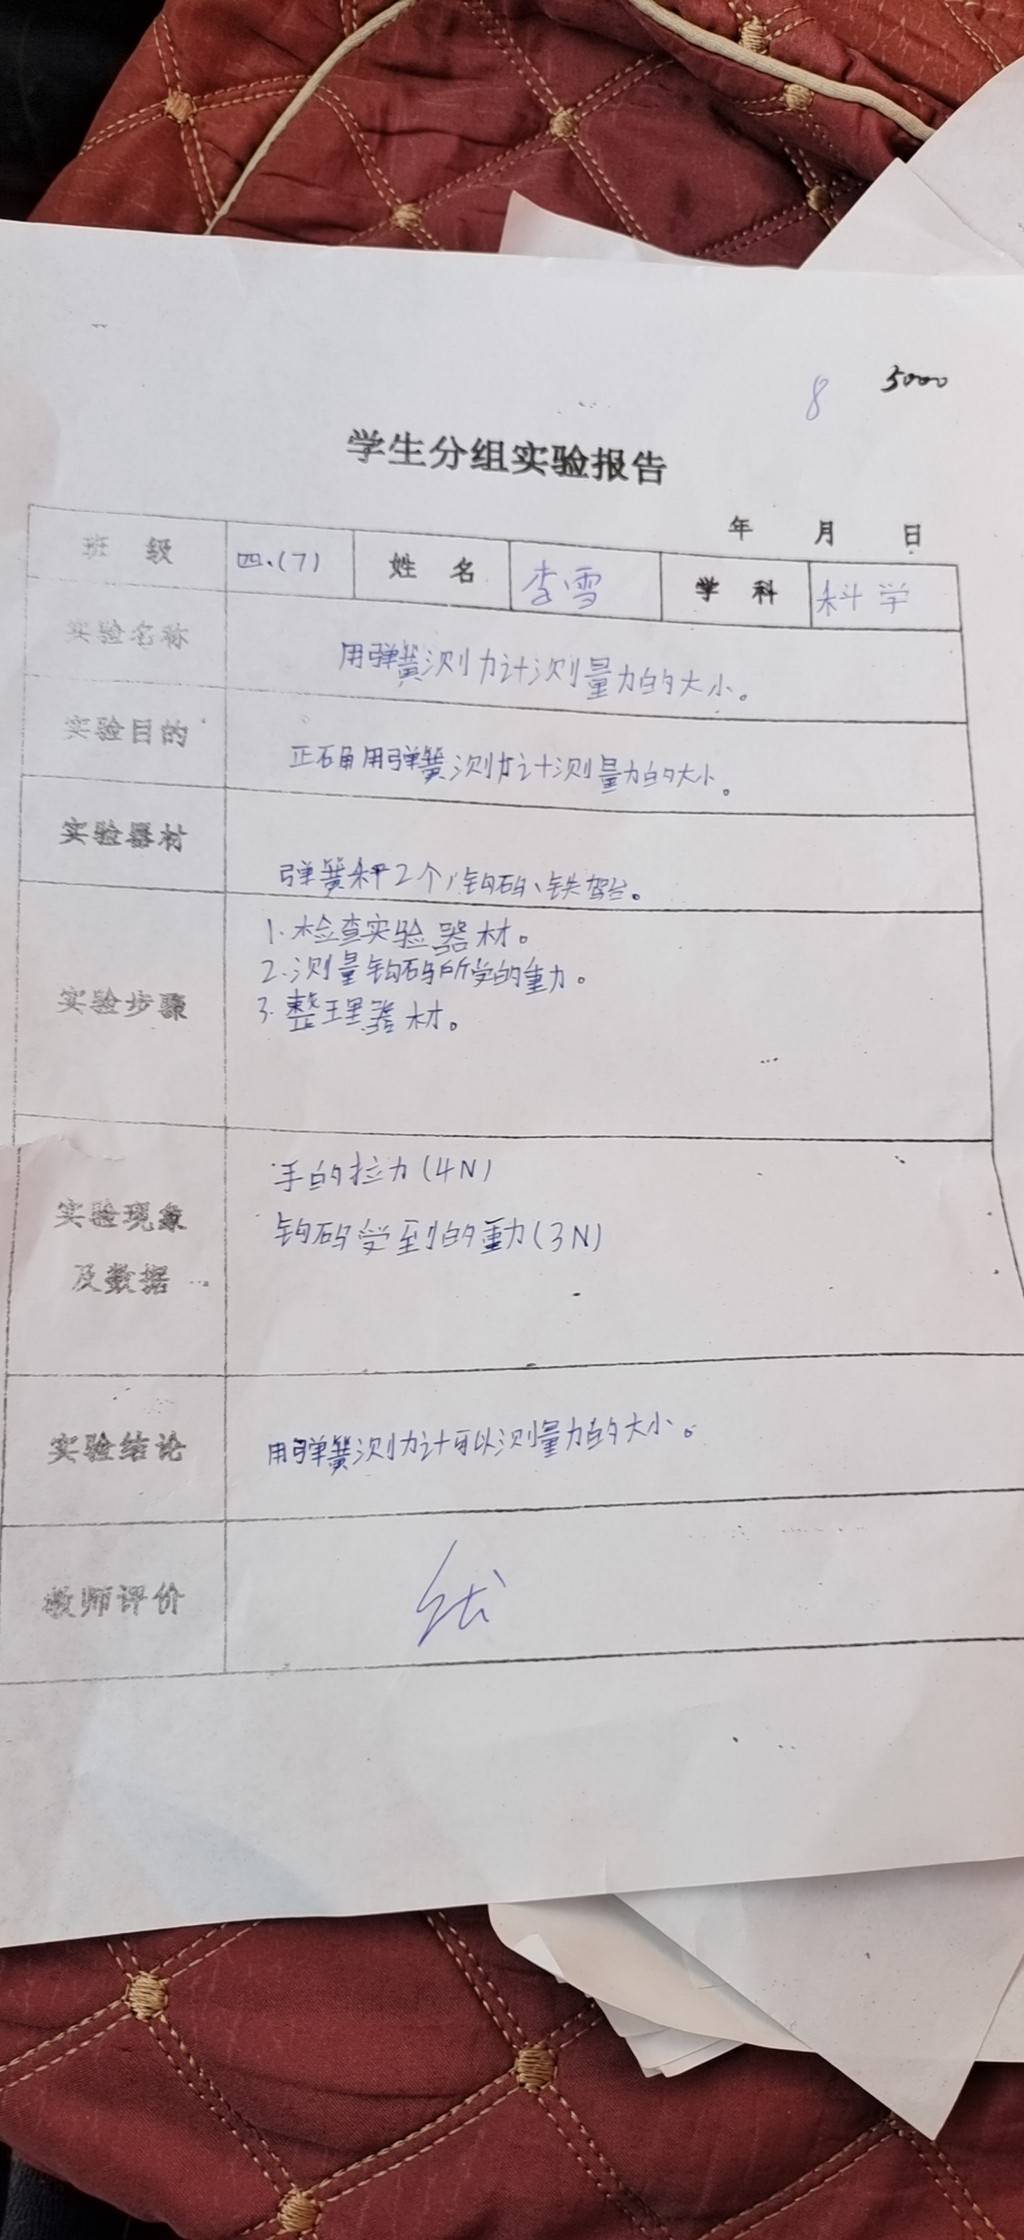 8 5000
学生分组实验报告
年 月 日
班 级 四.(7) 姓 名 李雪 学 科 科学
实验名称 用弹簧测力计测量力的大小。
实验目的 正确用弹簧测力计测量力的大小。
实验器材 弹簧秤2个、钩码、铁架台。
实验步骤
1.检查实验器材。
2.测量钩码所受的重力。
3.整理器材。
实验现象
及数据
手的拉力(4N)
钩码受到的重力(3N)
实验结论 用弹簧测力计可以测量力的大小。
教师评价 优